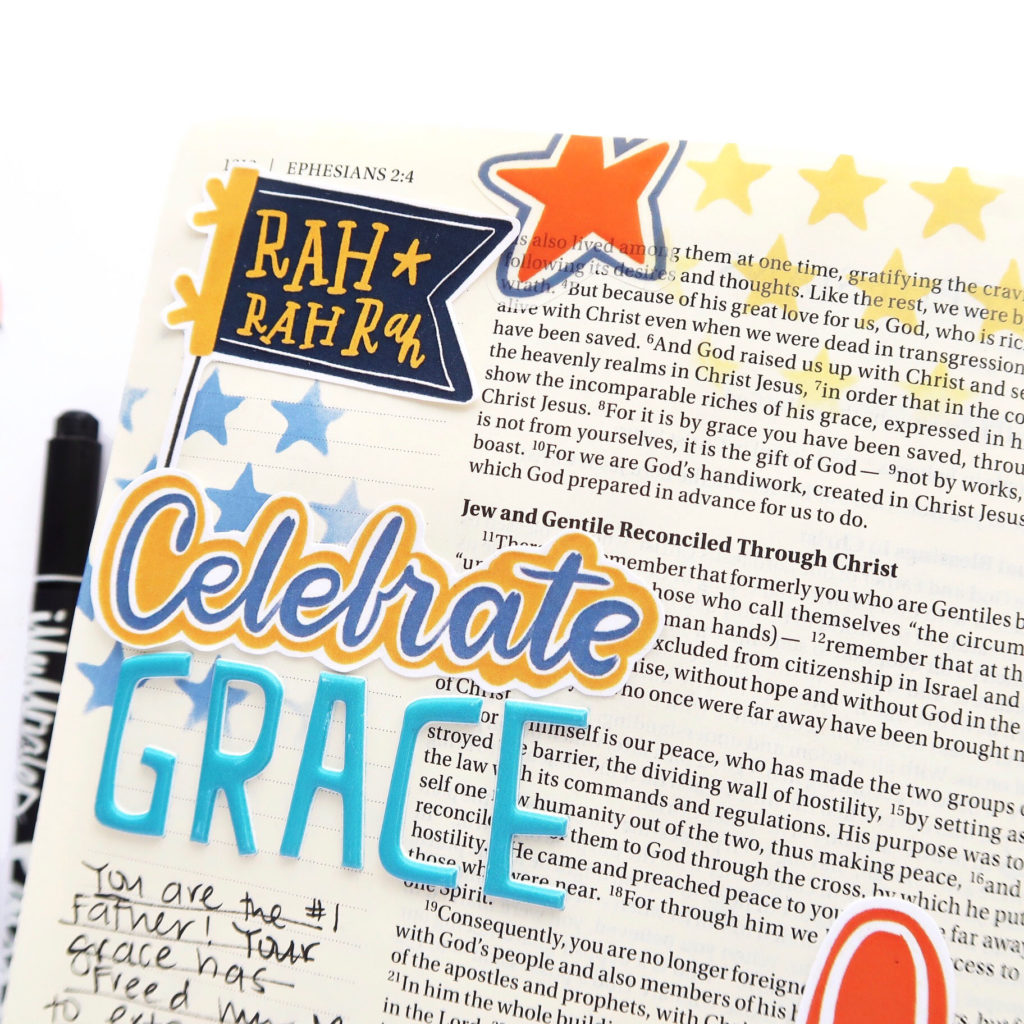 EPHESIANS 2:4
RAH
RAH Rah
Celebrate
GRACE
You are the #1
Father! Your
grace has
Freed
to
also lived among them at one time, gratifying the
following its desires and thoughts. Like the rest, we were
wrath. 4But because of his great love for us, God, who is
alive with Christ even when we were dead in
have been saved. 6And God raised us up with Christ and
the heavenly realms in Christ Jesus, 7in order that in the
show the incomparable riches of his grace, expressed in
Christ Jesus. 8For it is by grace you have been saved,
is not from yourselves, it is the gift of God— 9not by works,
boast. 10For we are God's handiwork, created in Christ Jesus
which God prepared in advance for us to do.
Jew and Gentile Reconciled Through Christ
remember that formerly you who are Gentiles
those who call themselves "the
hands)— 12remember that at
excluded from citizenship in Israel and
without hope and without God in the
of Christ who once were far away have been brought
himself is our peace, who has made the two groups
barrier, the dividing wall of hostility, 15by setting
the law its commands and regulations. His purpose was to
self one humanity out of the two, thus making peace, 16and
them to God through the cross, by which he put
hostility. He came and preached peace to you far
those who were near. 18For through him we access to
one Spirit.
19Consequently, you are no longer
with God's people and also members of his
of the apostles and prophets, with
21In him the whole
in the Lord.